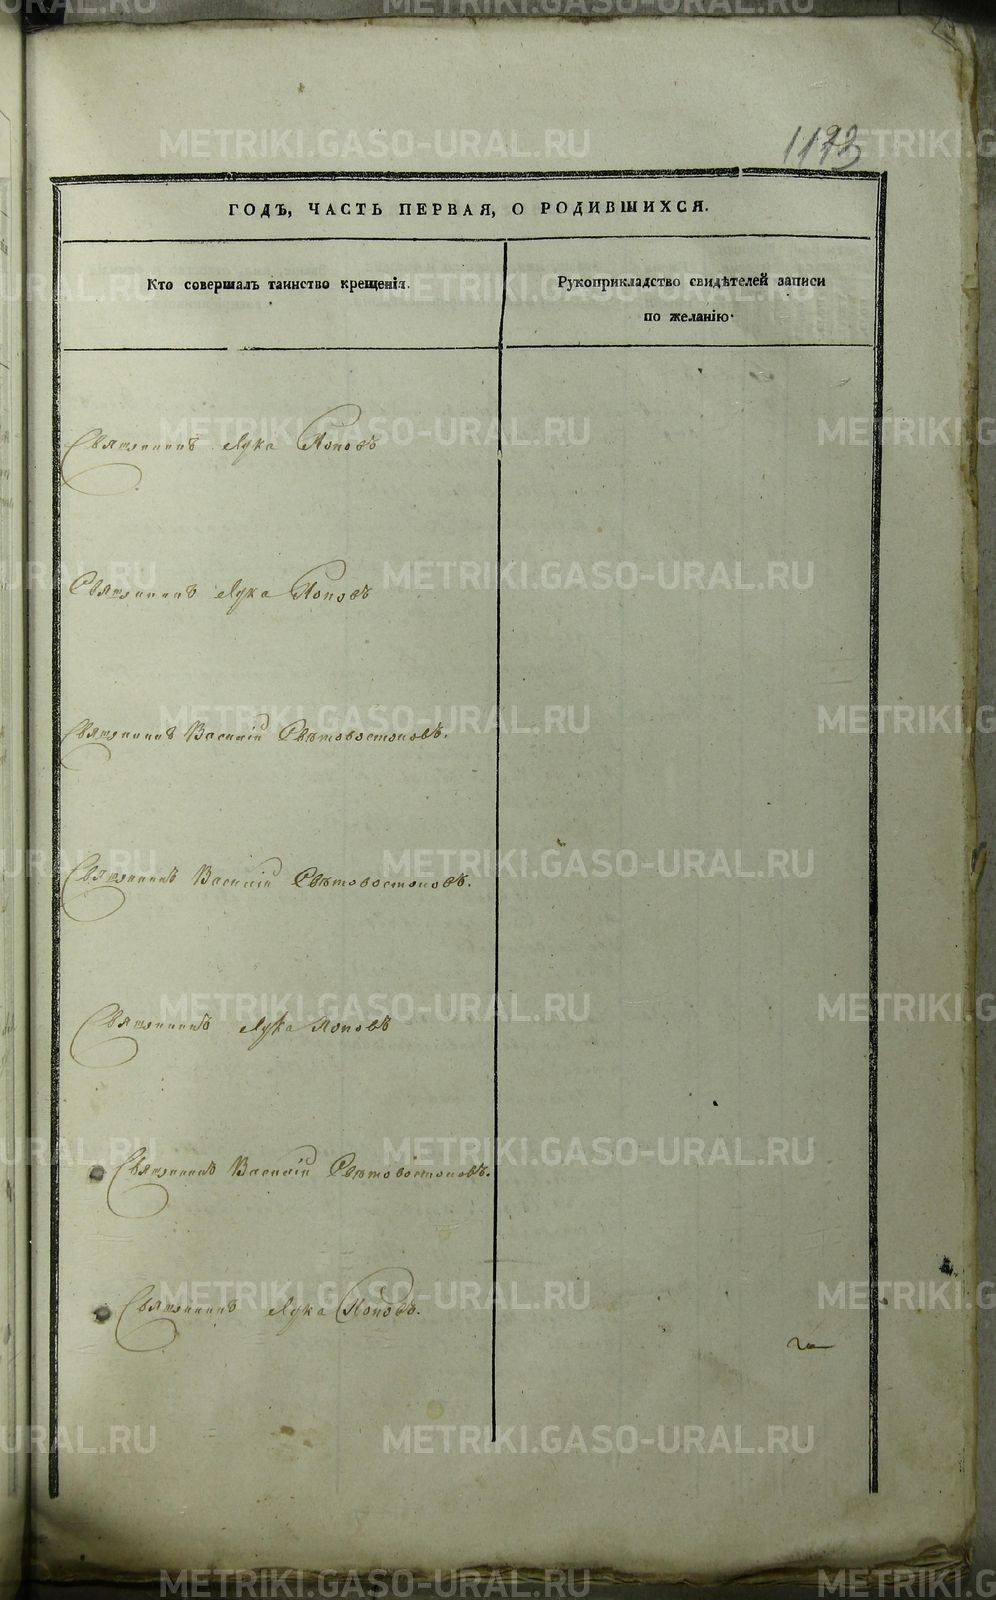 ГОДЪ, ЧАСТЬ ПЕРВАЯ, О РОДИВШИХСЯ.
Кто совершалъ таинство крещенія.
Рукоприкладство свидѣтелей записи
по желанію.
Священникъ Лука Поповъ
Священникъ Лука Поповъ
Священникъ Василій Свѣтовостоковъ.
Священникъ Василій Свѣтовостоковъ.
Священникъ Лука Поповъ
Священникъ Василій Свѣтовостоковъ.
Священникъ Лука Поповъ.
METRIKI.GASO-URAL.RU